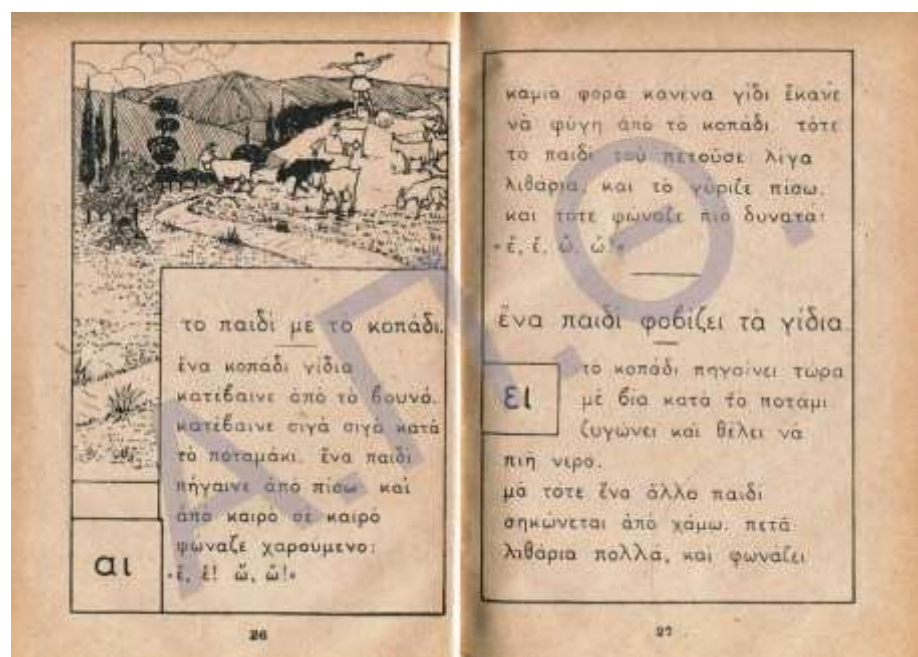 το παιδί με το κοπάδι.
ἕνα κοπάδι γίδια
κατέβαινε ἀπὸ τὸ βουνό.
κατέβαινε σιγὰ σιγὰ κατὰ
τὸ ποταμάκι. ἕνα παιδὶ
πήγαινε ἀπὸ πίσω καὶ
ἀπὸ καιρὸ σὲ καιρὸ
φώναζε χαρούμενο:
«ἔ, ἔ! ὤ, ὤ!»
αι
26
καμιὰ φορὰ κανένα γίδι ἔκανε
νὰ φύγη ἀπὸ τὸ κοπάδι. τότε
τὸ παιδὶ τοῦ πετοῦσε λίγα
λιθάρια, καὶ τὸ γύριζε πίσω.
καὶ τότε φώναζε πιὸ δυνατά:
«ἔ, ἔ, ὤ, ὤ!»
ἕνα παιδὶ φοβίζει τὰ γίδια
ει
τὸ κοπάδι πηγαίνει τώρα
μὲ βία κατὰ τὸ ποτάμι
ζυγώνει καὶ θέλει νὰ
πιῆ νερό.
μὰ τότε ἕνα ἄλλο παιδὶ
σηκώνεται ἀπὸ χάμω. πετᾶ
λιθάρια πολλά, καὶ φωνάζει
27
Α.Π.Θ.